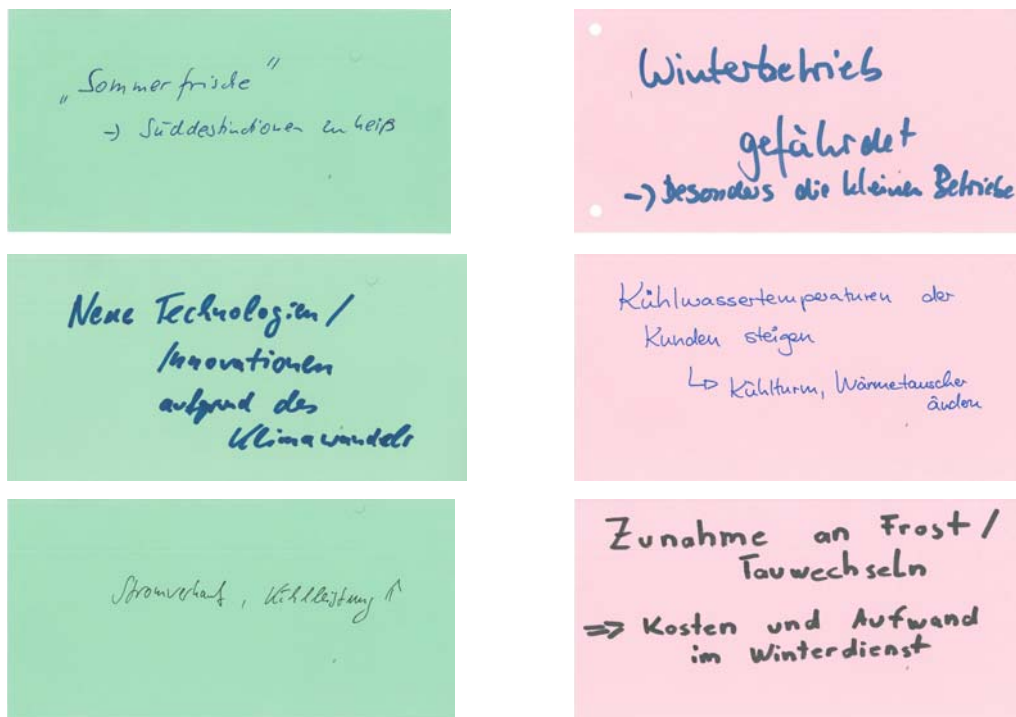 „Sommerfrische"
→ Süddestinationen zu heiß
Neue Technologien/
Innovationen
aufgrund des
Klimawandels
Stromverkauf, Kühlleistung ↑
Winterbetrieb
gefährdet
→ Besonders die kleinen Betriebe
Kühlwassertemperaturen der
Kunden steigen
↳ Kühlturm, Wärmetauscher
ändern
Zunahme an Frost/
Tauwechseln
⇒ Kosten und Aufwand
im Winterdienst